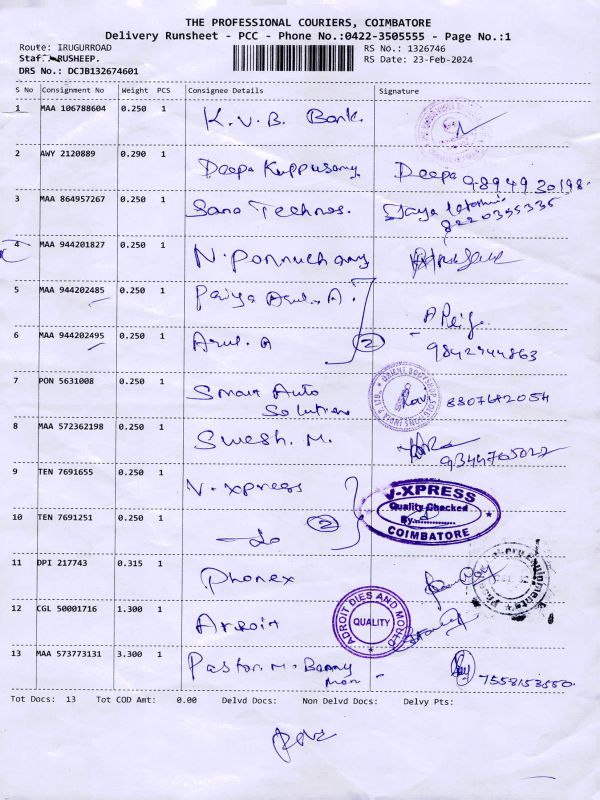 THE PROFESSIONAL COURIERS, COIMBATORE
Delivery Runsheet - PCC - Phone No.:0422-3505555 - Page No.:1
Route: IRUGURROAD
RS No.: 1326746
Staf: RUSHEEP.
RS Date: 23-Feb-2024
DRS No.: DCJB132674601
S No Consignment No Weight PCS Consignee Details Signature
1 MAA 106788604 0.250 1 K.V.B. Bank.
2 AWY 2120889 0.290 1 Deepa Kuppusamy. Deepa 9894930198
3 MAA 864957267 0.250 1 Sano Technos. 8220355335
4 MAA 944201827 0.250 1 N. Ponnuchamy
5 MAA 944202485 0.250 1 Priya Arul. A.
6 MAA 944202495 0.250 1 Arul. A 2 9842744863
7 PON 5631008 0.250 1 Smart Auto Solutions Ravi 8807642054
8 MAA 572362198 0.250 1 Suresh. M. 9344705027
9 TEN 7691655 0.250 1 V-xpress
V-XPRESS
Quality Checked
By:..............
COIMBATORE
10 TEN 7691251 0.250 1 -do 2
11 DPI 217743 0.315 1 Phonex
12 CGL 50001716 1.300 1 Adroit
ADROIT DIES AND MOULD
QUALITY
13 MAA 573773131 3.300 1 Pastor. M. Benny Mon - 7558153550.
Tot Docs: 13 Tot COD Amt: 0.00 Delvd Docs: Non Delvd Docs: Delvy Pts: